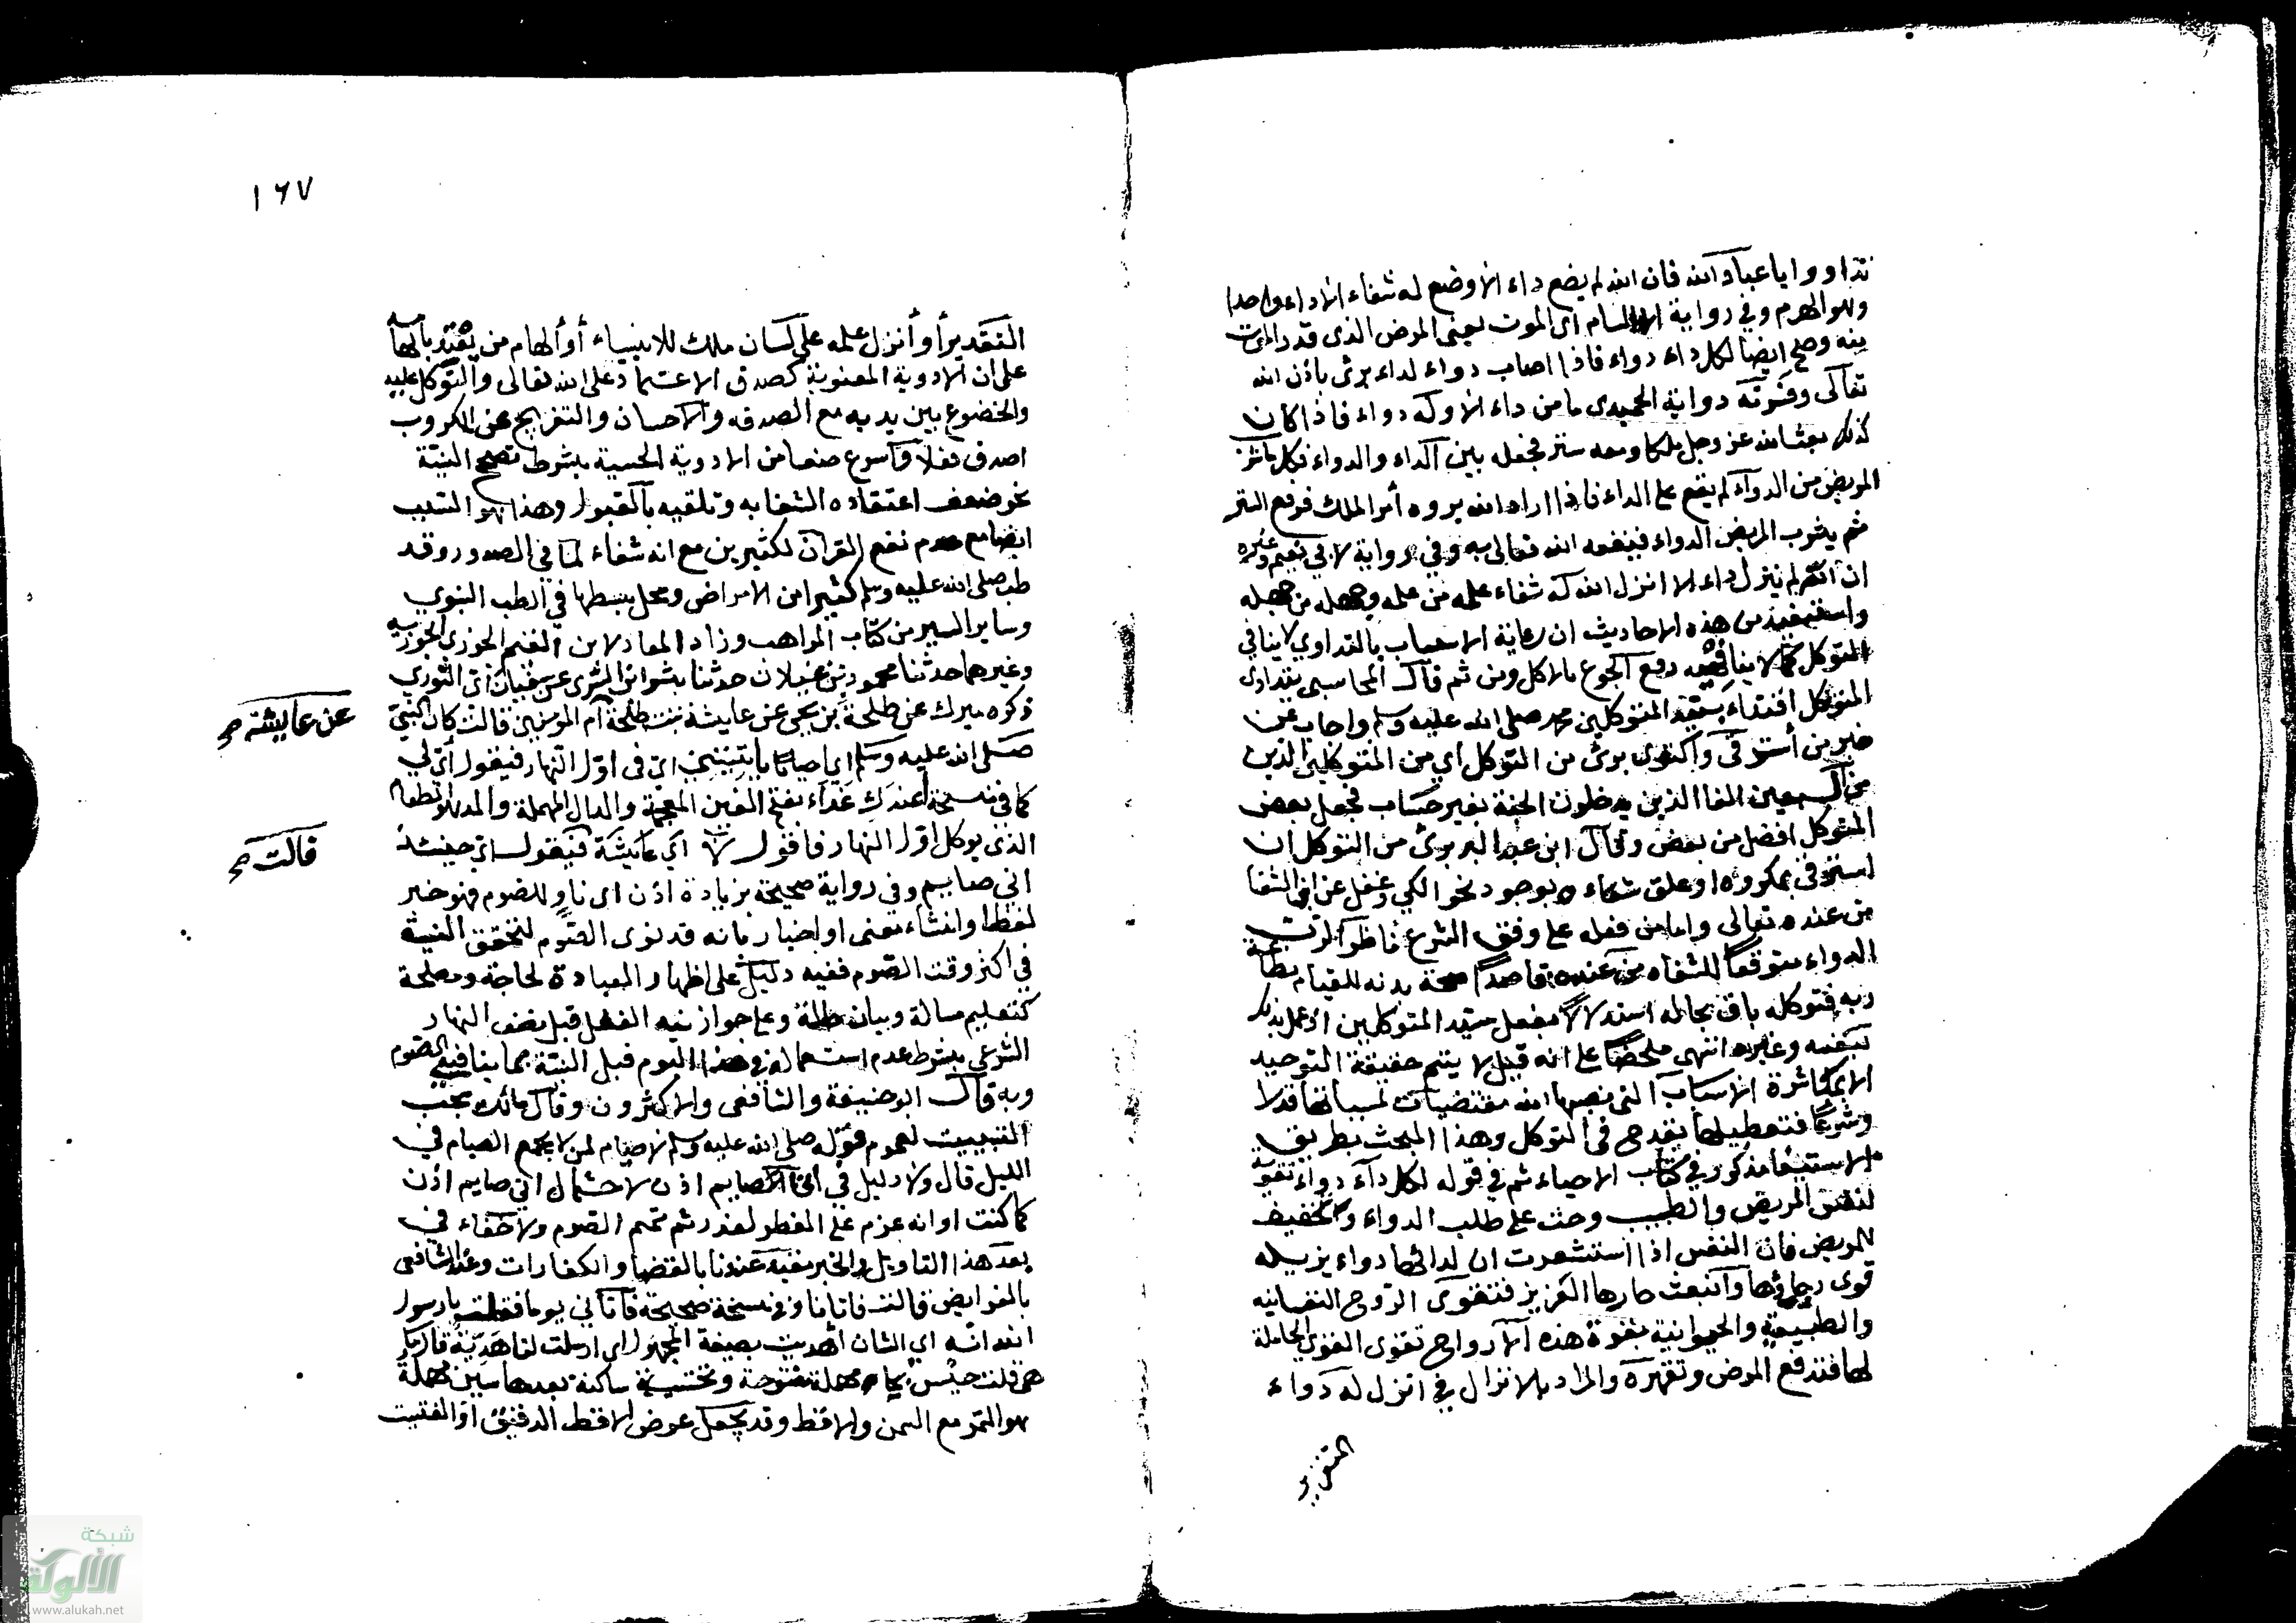 تداووا يا عباد الله فان الله لم يضع داء الا وضع له شفاء الا داء واحدا
وهو الهرم وفي رواية الا السام اى الموت يعنى المرض الذى قدر الموت
فيه وصح ايضا لكل داء دواء فاذا اصاب دواء لداء برئ باذن الله
تعالى وفسرته رواية الحميدى ما من داء الا وله دواء فاذا كان
كذلك بعث الله عز وجل ملكا ومعه ستر فجعله بين الداء والدواء فكلما شرب
المريض من الدواء لم يقع على الداء فاذا اراد الله برءه أمر الملك فرفع الستر
ثم يشرب المريض الدواء فينفعه الله تعالى به وفي رواية لابي نعيم وغيره
ان الله لم ينزل داء الا انزل الله له شفاء علمه من علمه وجهله من جهله
واستفيد من هذه الاحاديث ان رعاية الاسباب بالتداوي لا ينافي
التوكل كما لا ينافيه دفع الجوع بالاكل ومن ثم قال المحاسبى يتداوى
المتوكل اقتداء بسيد المتوكلين محمد صلى الله عليه وسلم واجاب عن
خبر من أسترقى واكتوى برئ من التوكل اي من المتوكلين الذين
من السبعين الفا الذين يدخلون الجنة بغير حساب فجعل بعض
المتوكل افضل من بعض وقال ابن عبد البر برئ من التوكل ان
استرقى بمكروه او علق شفاءه بوجود نحو الكي وغفل عن ان الشفا
من عنده تعالى واما من فعله على وفق الشرع ناظرا لرب
الدواء متوقعا للشفاء من عنده قاصدا صحة بدنه للقيام بطاعة
ربه فتوكله باق بحاله استدلالا بفعل سيد المتوكلين اذ عمل بذلك
لنفسه وغيره انتهى ملخصا على انه قيل لا يتم حقيقة التوحيد
الا بمباشرة الاسباب التى نصبها الله مقتضيات لمسبباتها قدرا
وشرعا فتعطيلها يقدح فى التوكل وهذا المبحث بطريق
الاستيفا مذكور في كتاب الاحياء ثم في قوله لكل داء دواء تقوية
لنفس المريض والطبيب وحث على طلب الدواء وتخفيف
للمريض فان النفس اذا استشعرت ان لدائها دواء يزيله
قوى رجاؤها وانبعث حارها الغريزي فتقوى الروح النفسانيه
والطبيعية والحيوانية بقوة هذه الارواح تقوى القوى الحاملة
لها فتدفع المرض وتقهره والمراد بالانزال في انزل له دواء
التقدير
١٦٧
التقدير أو أنزل علمه على لسان ملك للانبياء أو ألهام من يعتد بالهامه
على ان الادوية المعنوية كصدق الاعتماد على الله تعالى والتوكل عليه
والخضوع بين يديه مع الصدقه والاحسان والتفريج عن المكروب
اصدق فعلا واسرع نفعا من الادوية الحسية بشرط تصحيح النية
نحو ضعف اعتقاده الشفا به وتلقيه بالقبول وهذا هو السبب
ايضا مع عدم نفع القران لكثيرين مع انه شفاء لما في الصدور وقد
طب صلى الله عليه وسلم كثيرا من الامراض ومحل بسطها في الطب النبوي
وسائر السير من كتاب المواهب وزاد المعاد لابن القيم الجوزى الجوزيه
وغيرهما حدثنا محمود بن غيلان حدثنا بشر ابن السرى عن سفيان اى الثوري
ذكره ميرك عن طلحة بن يحيى عن عايشة بنت طلحة أم المومنين قالت كان النبي
عن عايشة صح
صلى الله عليه وسلم اي احيانا ياتيني اى فى اول النهار فيقول أى لي
كما في نسخة أعندك غداء بفتح الغين المعجمة والدال المهملة والمد هو الطعام
الذى يوكل اول النهار فاقول لا اي عايشة فيقول اى حينئذ
قالت صح
انى صايم وفى رواية صحيحة بزيادة اذن اى ناو للصوم فهو خبر
لفظا وانشاء معنى او اخبار بانه قد نوى الصوم لتحقق النية
في اكثر وقت الصوم ففيه دليل على اظهار العبادة لحاجة ومصلحة
كتعليم مسالة وبيان حالة وعلى جواز نيه النفل قبل نصف النهار
الشرعي بشرط عدم استعماله في هذا اليوم قبل النية بما ينافي الصوم
وبه قال ابو حنيفة والشافعى والاكثرون وقال مالك يجب
التبييت لعموم قوله صلى الله عليه وسلم لا صيام لمن لا يجمع الصيام في
الليل قال ولا دليل في انى صايم اذن لاحتمال اني صايم اذن
كما كنت او انه عزم على الفطر لعذر ثم تمم الصوم ولا خفاء في
بعد هذا التاويل والخبر مقيد عندنا بالقضا والكفارات وعند الشافعى
بالفرايض قالت فاتانا وفى نسخة صحيحة فاتاني يوما فقلت يا رسول
الله انه اي الشان أهديت بصيغة المجهول اى ارسلت لنا هدية قال وما
هى قلت حيس بحاء مهملة مفتوحة وتحتية ساكنة بعدها سين مهملة
هو التمر مع السمن والاقط وقد يجعل عوض الاقط الدقيق او الفتيت
شبكة
الألوكة
www.alukah.net